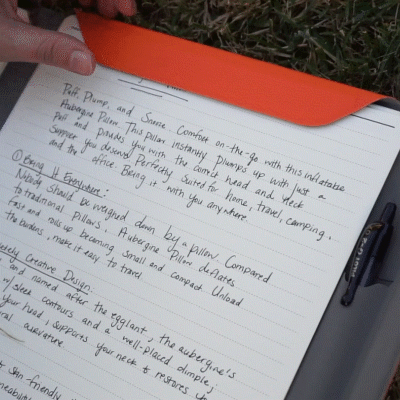 Puff, Plump, and Snooze. Comfort on-the-go with this inflatable
Aubergine Pillow. This pillow instantly plumps up with just a
Puff and provides you with the correct head and neck
Support you deserve. Perfectly suited for home, travel, camping,
and the office. Bring it with you anywhere.
① Bring It Everywhere:
Nobody should be weighed down by a pillow. Compared
to traditional Pillows, Aubergine Pillow deflates
fast and rolls up becoming small and compact. Unload
the burdens, make it easy to travel
Creative Design:
and named after the eggplant, the aubergine's
w/ sleek contours and a well-placed dimple,
your head, supports your neck to restores
curvature.
skin-friendly
PILOT G-2